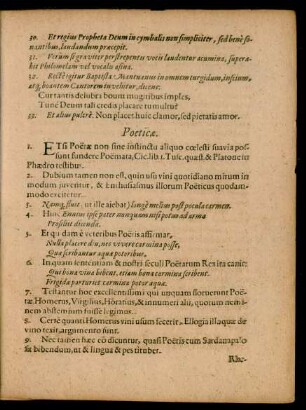 30. Et regius Propheta Deum in cymbalis non simpliciter, sed benè so-
nantibus, laudandum præcepit.
31. Verum si graviter perstrepentes vocis laudentur acumina, superabit Philomelam vel vocalis asinus.
32. Rectè igitur Baptista Mantuanus in omnem turgidum, inscium,
boantem Cantorem invehitur, dicens:
Cur tantis delubra boum mugitibus imples,
Tunè Deum tali credis placare tumultu?
33. Et alius pulcrè. Non placet huic clamor, sed pietatis amor.
Poeticæ.
1. ETsi Poëtæ non sine instinctu aliquo cœlesti suavia pos-
sunt fundere Poëmata, Cic. lib. 1. Tusc. quæst. & Platone in
Phædro testibus.
2. Dubium tamen non est, quin usu vini quotidiano mirum in
modum juventur, & Enthusiasmus illorum Poëticus quodam-
modo excitetur.
3. Namq́; siue, ut ille aiebat, longè melius post pocula carmen.
4. Huic Ennius ipse pater nunquam nisi potus ad arma
Prosiliit dicenda.
5. Et quidam è veteribus Poëtis affirmat,
Nulla placere diu, nec vivere carmina posse,
Quæ scribantur aquæ potoribus,
6. In quam sententiam & nostri seculi Poëtarum Rex ita canit:
Qui bona vina bibent, etiam bona carmina scribent.
Frigida parturiet carmina potor aquæ.
7. Testantur hoc excellentissimi qui unquam floruerunt Poë-
tæ Homerus, Virgilius, Horatius, & annumeri alii, quorum nemi-
nem abstemium fuisse legimus.
8. Certè quanti Homerus vini usum fecerit, Ellogia illa quæ de
vino traxit, argumento sunt.
9. Nec tamen hæc eò dicuntur, quasi Poëtis cum Sardanapa-
lo sit bibendum, ut & lingua & pes titubet.
Rhe-